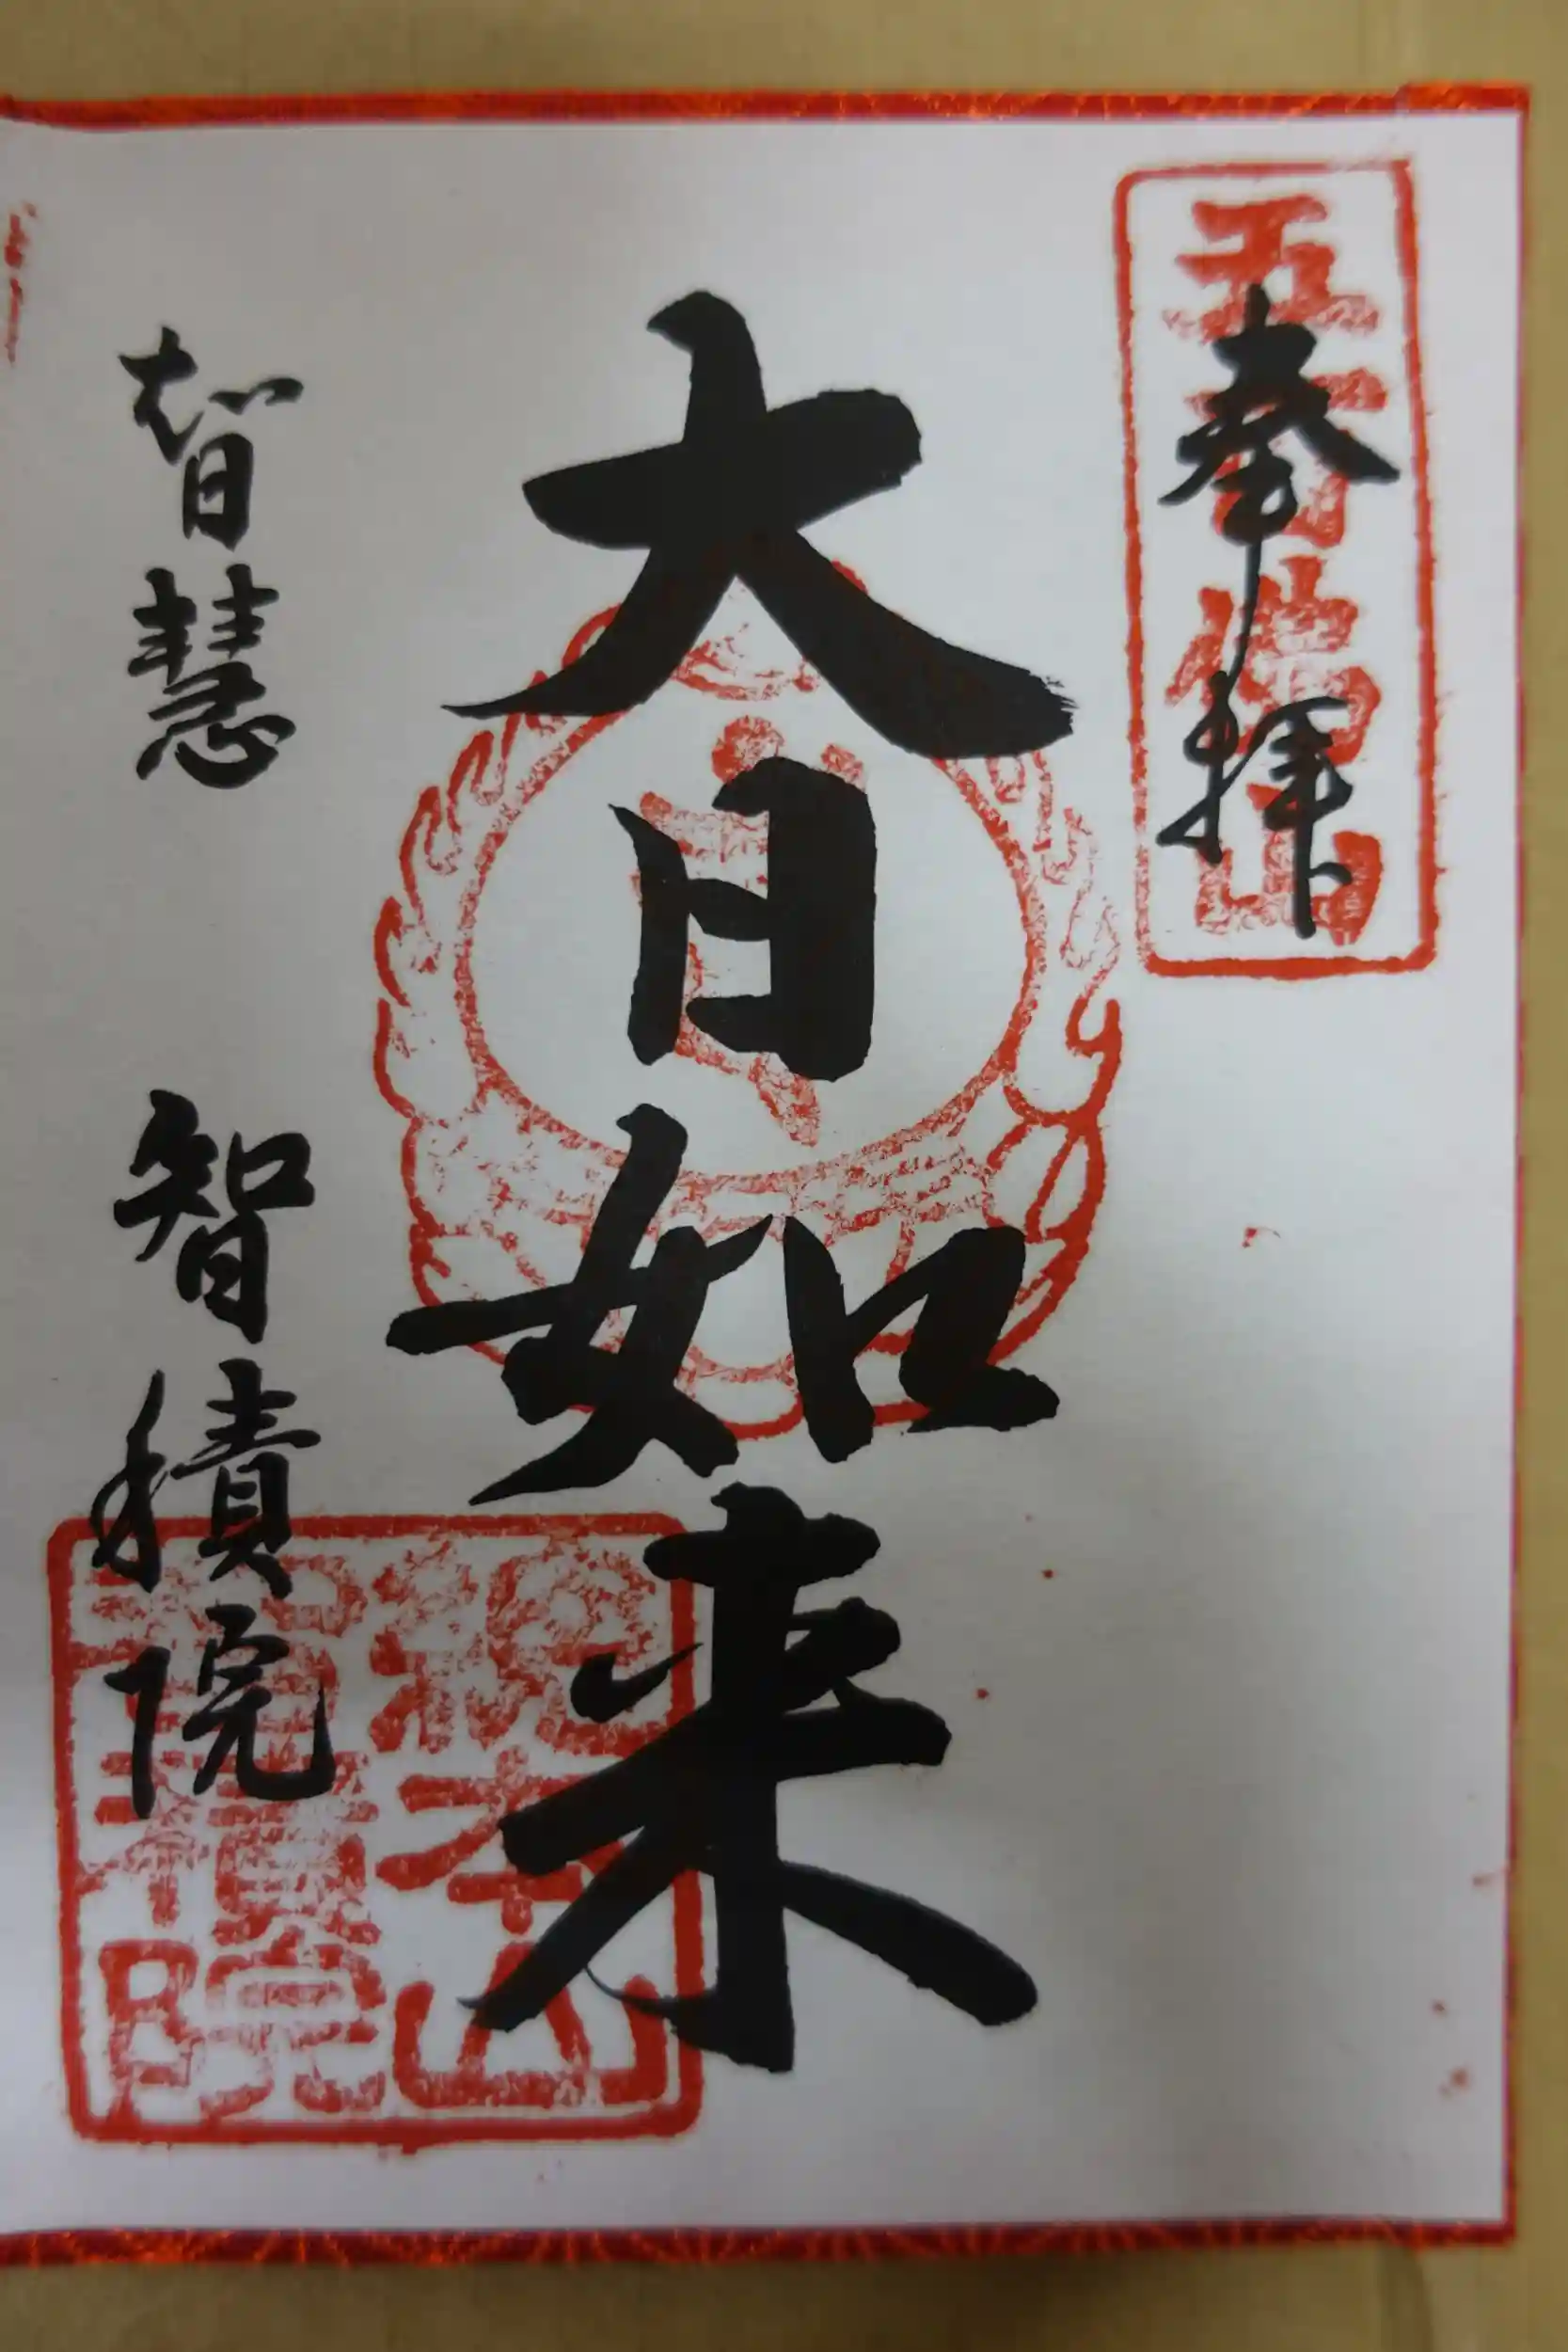 奉拝
五百佛山
大日如来
智慧 智積院
総本山
智積院